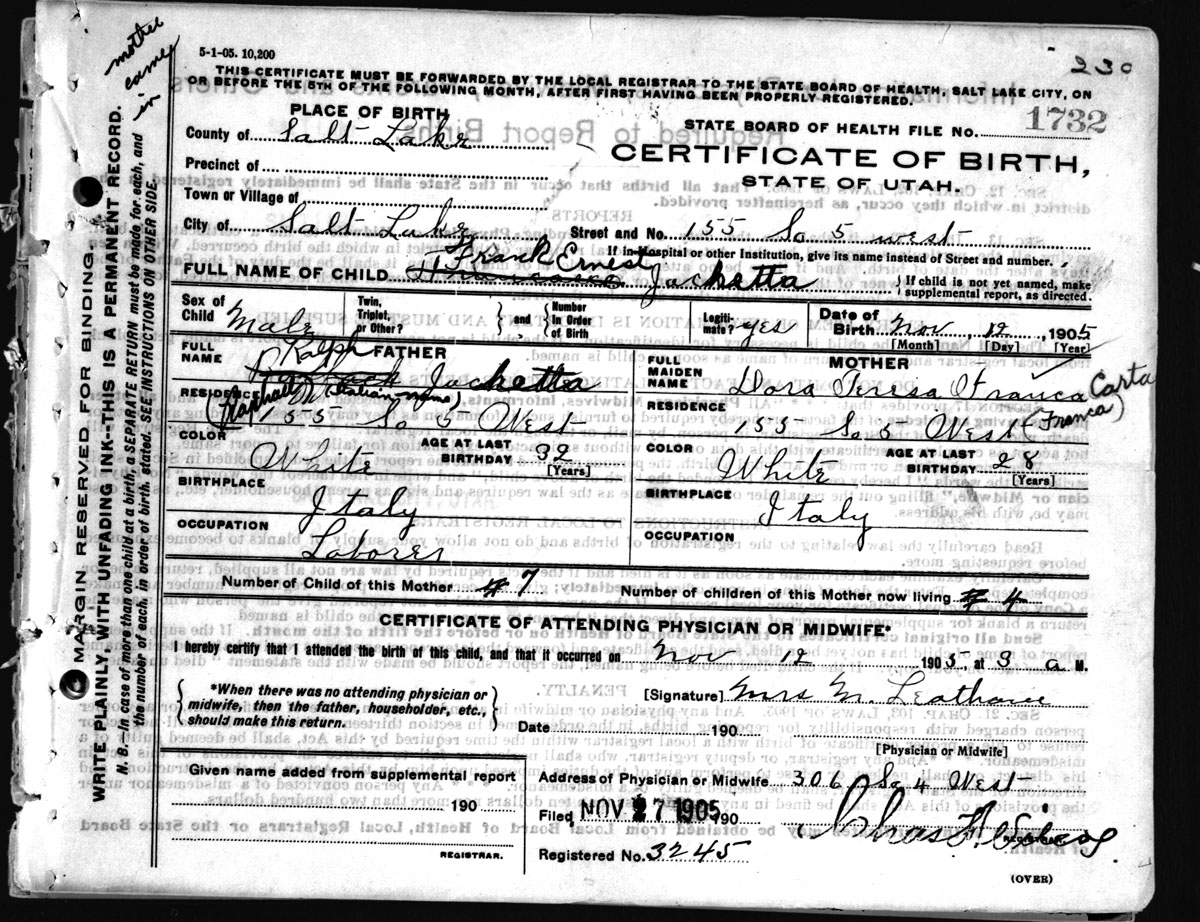 5-1-05. 10,200
230
THIS CERTIFICATE MUST BE FORWARDED BY THE LOCAL REGISTRAR TO THE STATE BOARD OF HEALTH, SALT LAKE CITY, ON
OR BEFORE THE 5TH OF THE FOLLOWING MONTH, AFTER FIRST HAVING BEEN PROPERLY REGISTERED.
PLACE OF BIRTH
STATE BOARD OF HEALTH FILE NO. 1732
County of Salt Lake
CERTIFICATE OF BIRTH,
Precinct of
STATE OF UTAH.
Town or Village of
City of Salt Lake Street and No. 155 So 5 West
If in Hospital or other Institution, give its name instead of Street and number.
Frank Ernest
FULL NAME OF CHILD Jachetta
If child is not yet named, make
supplemental report, as directed.
Sex of
Child Male
Twin,
Triplet,
or Other?
and
Number
in Order
of Birth
Legiti-
mate? yes
Date of
Birth Nov 12, 1905
[Month] [Day] [Year]
FULL
NAME
FATHER
Ralph
Jachetta
RESIDENCE
(Italian name)
155 So 5 West
COLOR
White
AGE AT LAST
BIRTHDAY 32
[Years]
BIRTHPLACE
Italy
OCCUPATION
Laborer
FULL
MAIDEN
NAME
MOTHER
Dora Teresa Franca Carta
(Franca)
RESIDENCE
155 So 5 West
COLOR
White
AGE AT LAST
BIRTHDAY 28
[Years]
BIRTHPLACE
Italy
OCCUPATION
Number of Child of this Mother 7
Number of children of this Mother now living 4
CERTIFICATE OF ATTENDING PHYSICIAN OR MIDWIFE*
I hereby certify that I attended the birth of this child, and that it occurred on Nov 12 1905, at 3 a M.
*When there was no attending physician or
midwife, then the father, householder, etc.,
should make this return.
[Signature] Mrs M.
Date 190
[Physician or Midwife]
Given name added from supplemental report
190
REGISTRAR.
Address of Physician or Midwife 306 So 4 West
Filed NOV 27 1905 190
Registered No. 3245
(OVER)
MARGIN RESERVED FOR BINDING
WRITE PLAINLY, WITH UNFADING INK--THIS IS A PERMANENT RECORD.
N. B.—In case of more than one child at a birth, a SEPARATE RETURN must be made for each, and
the number of each, in order of birth, stated. SEE INSTRUCTIONS ON OTHER SIDE.
mother
came
in